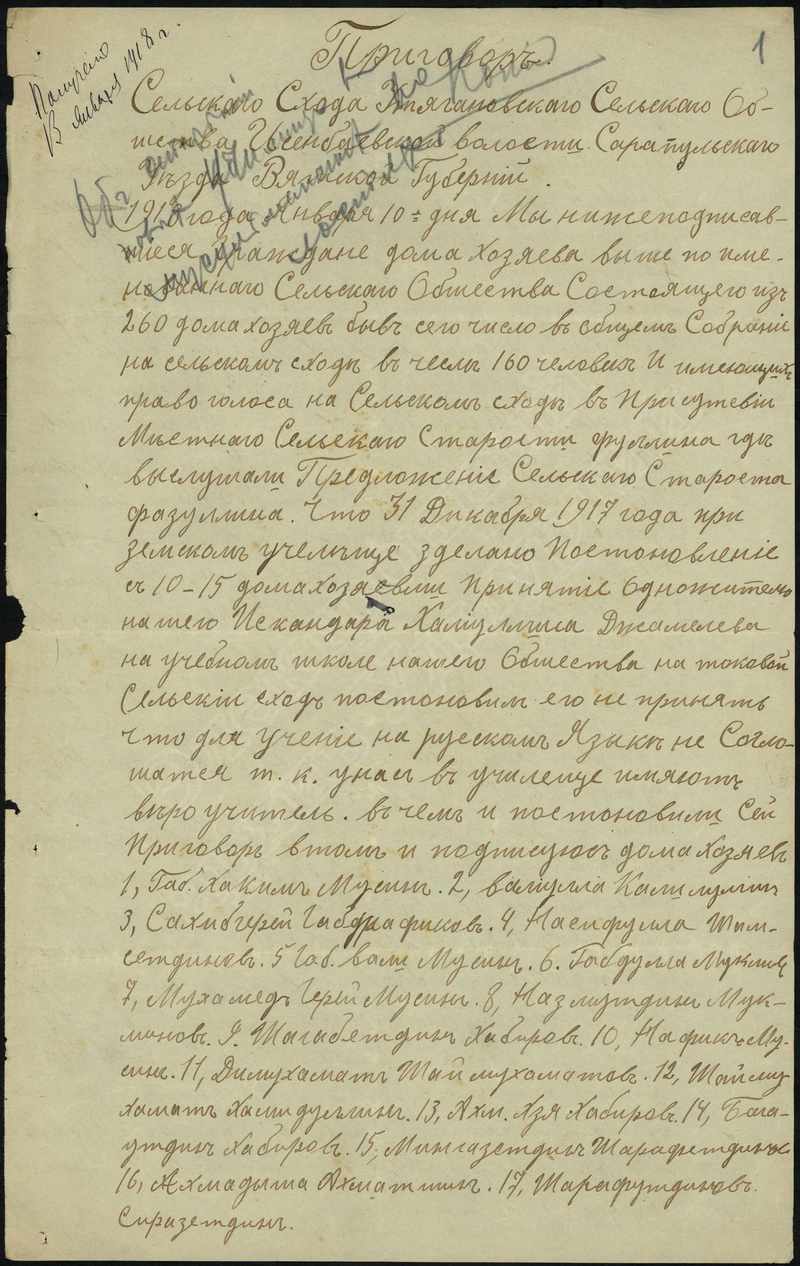 Получено
13 Января 1918 г.
1
Приговоръ.
Сельскаго Схода Этягановскаго Сельскаго Об-
щества, Исенбаевской волости Сарапульскаго
Уѣзда Вятской Губерніи.
1918 года Января 10го дня Мы нижеподписав-
шиеся граждане домахозяева выше по име-
нованнаго Сельскаго Общества Состоящего изъ
260 домахозяевъ бывъ сего число въ общемъ Собраніи
на сельскомъ сходѣ въ чеслѣ 160 человѣкъ И имеющихъ
право голоса на Сельскомъ сходѣ въ Присутевіи
Мѣстнаго Сельскаго Старосты гдѣ
выслушали Предложеніе Сельскаго Староста
Фазуллина. Что 31 Дикабря 1917 года при
земскомъ учелище зделано Постоновленіе
съ 10-15 домахозяевми Принятіе Одножителю
нашего Искандара Халиуллина Джамелева
на учебномъ школе нашего Общества на токовой
Сельскій сходъ постоновилъ его не принять
Что для ученіе на рускомъ Языкѣ не Согло-
шатся т. к. унасъ въ училеще имяютъ
вѣроучитель. въ чемъ и постоновили Сей
Приговоръ втомъ и подписуюсъ домахозяевъ
1, Габ. Хакимъ Мусинъ. 2, Валиулла Калимуллин
3, Сахибгерей Габдрафиковъ. 4, Насифулла Шам-
сетдиновъ. 5 Габ. вали Мусинъ. 6. Габдулла Мукмин
7, Мухамедъ Герей Мусинъ. 8, Назмутдинъ Мук-
миновъ. 9. Шагабетдинъ Хабировъ. 10, Нафикъ Му-
синъ. 11, Дилмухаматъ Шаймухаматовъ. 12, Шаймy-
хаматъ Хамидуллинъ. 13, Ахм. Хзя Хабировъ. 14, Бага-
утдинъ Хабировъ. 15, Мингазетдинъ Шарафутдиновъ
16, Ахмадыша Ахматшин. 17, Шарафутдиновъ
Сиразетдинъ.